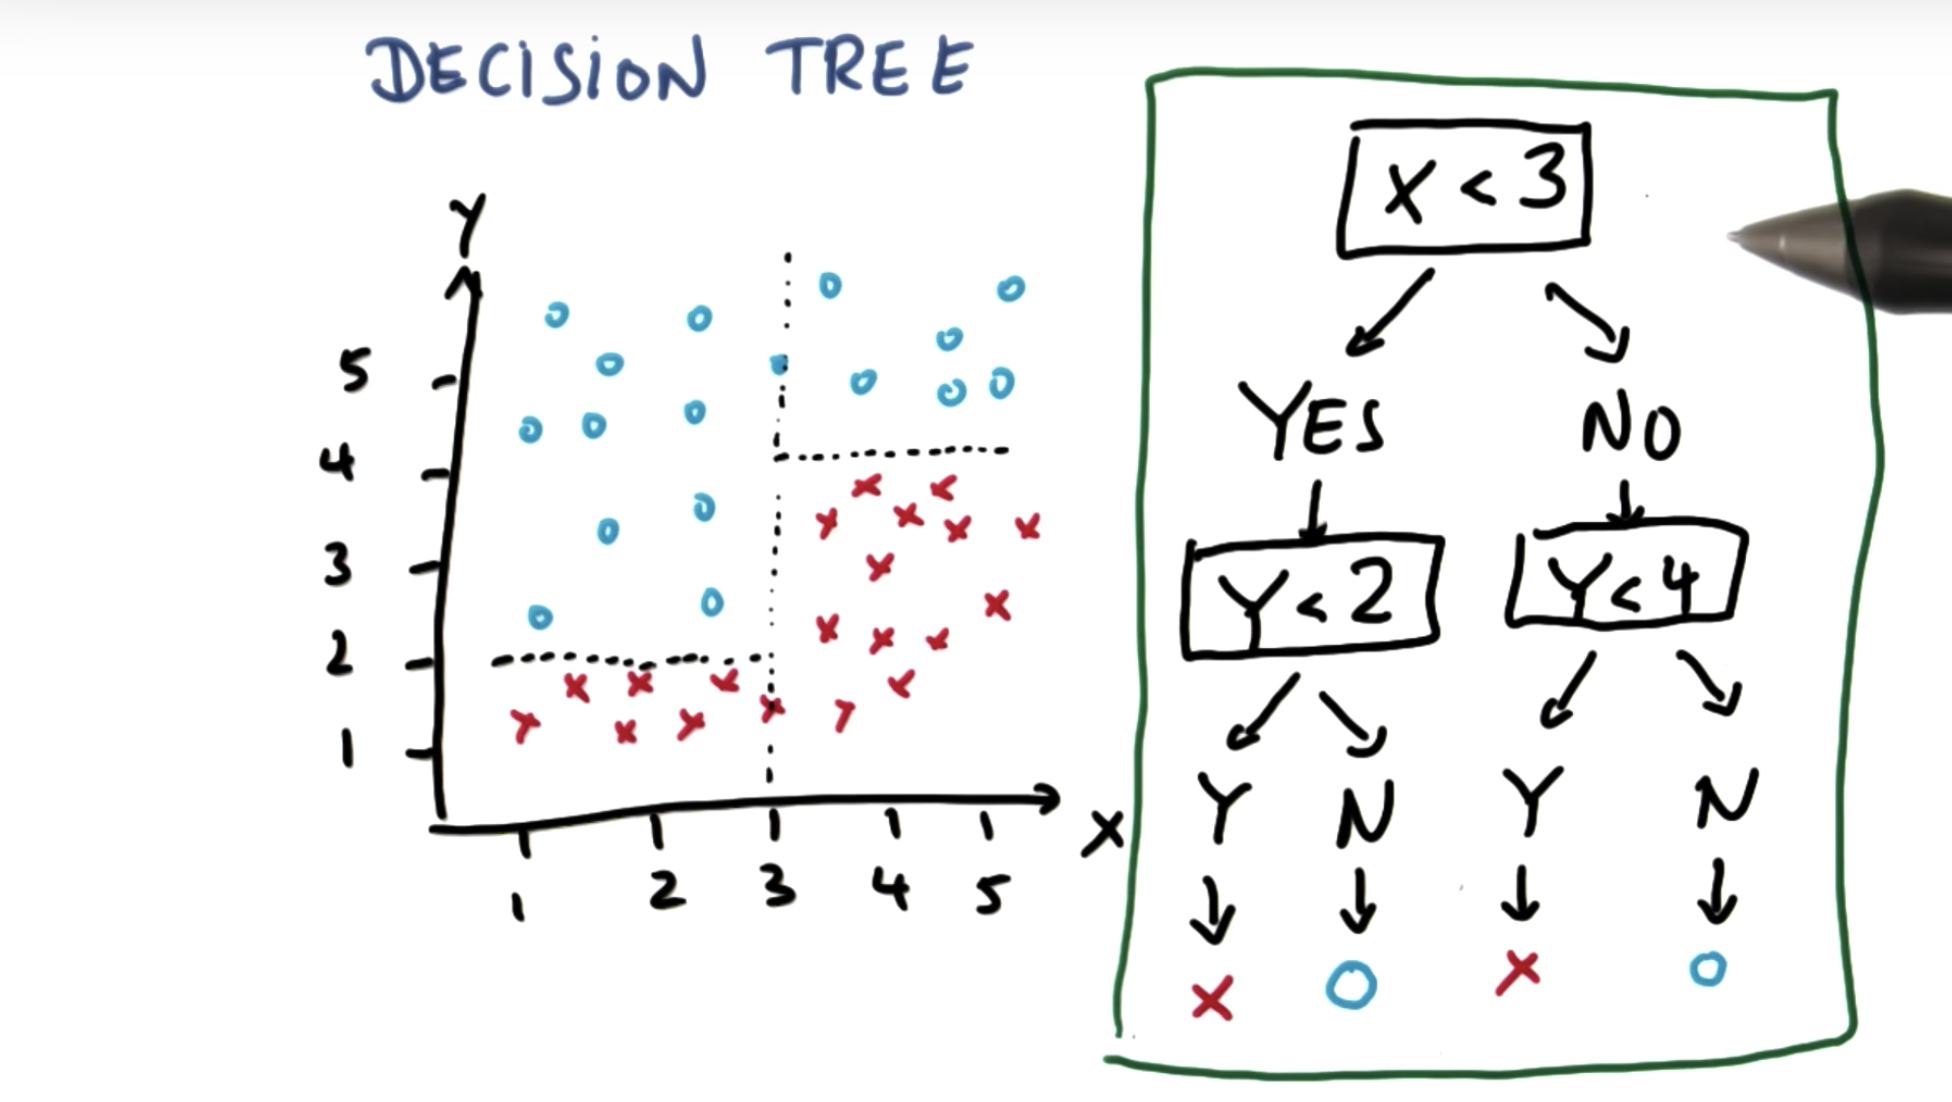 DECISION TREE
Y
5
4
3
2
1
1 2 3 4 5
X
X < 3
YES NO
Y < 2 Y < 4
Y N Y N
X O X O